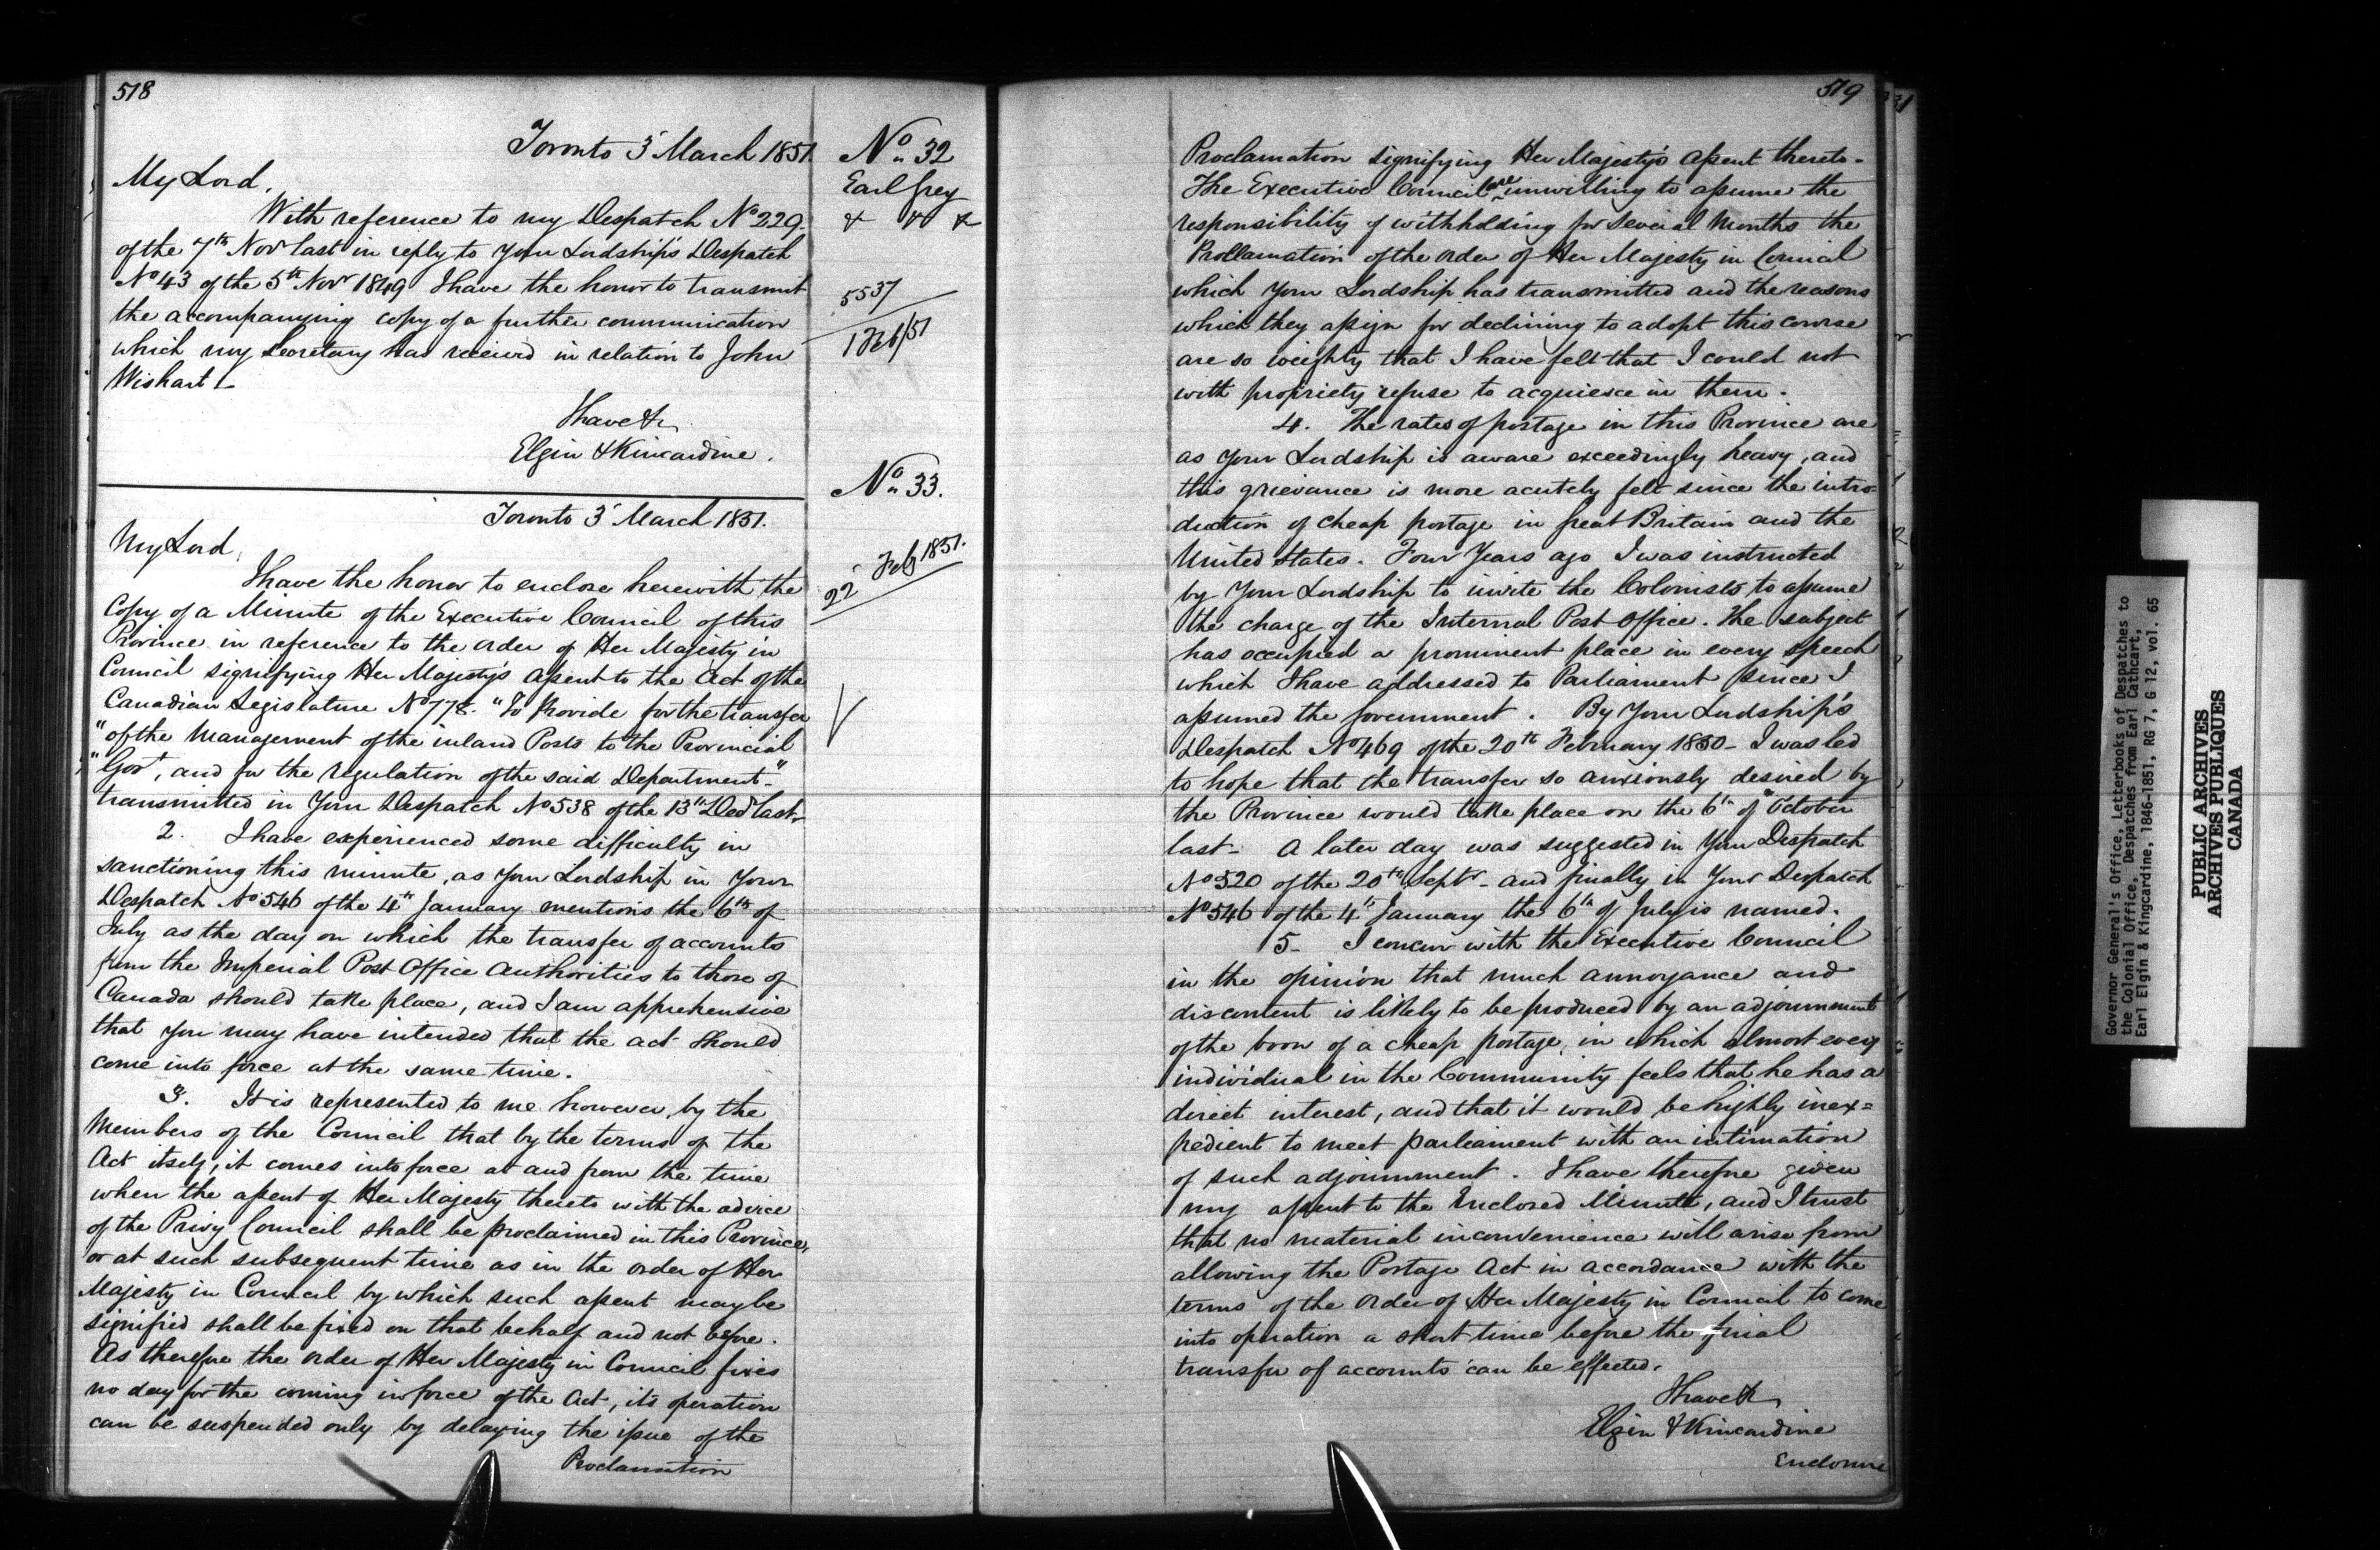 518
Toronto 3 March 1851.
My Lord,
With reference to my Despatch No 229.
of the 7th Novr last in reply to Your Lordship's Despatch
No 43 of the 5th Novr 1849 I have the honor to transmit
the accompanying copy of a further communication
which my Secretary has received in relation to John
Wishart
I have &c
Elgin & Kincardine.
No. 32
Earl Grey
& & &
5537
1 Feb/51
Toronto 3 March 1851.
My Lord,
I have the honor to enclose herewith the
Copy of a Minute of the Executive Council of this
Province in reference to the order of Her Majesty in
Council signifying Her Majesty's assent to the Act of the
Canadian Legislature No 778. "To Provide for the transfer
"of the Management of the inland Posts to the Provincial
"Govt, and for the regulation of the said Department"
transmitted in Your Despatch No 538 of the 13th Decr last.
2. I have experienced some difficulty in
sanctioning this minute, as Your Lordship in Your
Despatch No 546 of the 4th January mentions the 6th of
July as the day on which the transfer of accounts
from the Imperial Post Office Authorities to those of
Canada should take place, and I am apprehensive
that you may have intended that the act should
come into force at the same time.
3. It is represented to me however, by the
Members of the Council that by the terms of the
Act itself, it comes into force at and from the time
when the assent of Her Majesty thereto with the advice
of the Privy Council shall be proclaimed in this Province,
or at such subsequent time as in the order of Her
Majesty in Council by which such assent may be
signified shall be fixed on that behalf and not before.
As therefore the order of Her Majesty in Council fixes
no day for the coming in force of the Act, its operation
can be suspended only by delaying the issue of the
Proclamation
No. 33.
22 Feb 1851.
519
Proclamation signifying Her Majesty's assent thereto.
The Executive Council are unwilling to assume the
responsibility of withholding for several Months the
Proclamation of the order of Her Majesty in Council
which Your Lordship has transmitted and the reasons
which they assign for declining to adopt this course
are so weighty that I have felt that I could not
with propriety refuse to acquiesce in them.
4. The rates of postage in this Province are
as Your Lordship is aware exceedingly heavy, and
this grievance is more acutely felt since the intro=
duction of cheap postage in Great Britain and the
United States. Four Years ago I was instructed
by Your Lordship to invite the Colonists to assume
the charge of the Internal Post Office. The subject
has occupied a prominent place in every speech
which I have addressed to Parliament since I
assumed the Government. By Your Lordship's
Despatch No 469 of the 20th February 1850 - I was led
to hope that the transfer so anxiously desired by
the Province would take place on the 6th of October
last - A later day was suggested in Your Despatch
No 520 of the 20th Septr - and finally in Your Despatch
No 546 of the 4th January the 6th of July is named.
5 - I concur with the Executive Council
in the opinion that much annoyance and
discontent is likely to be produced by an adjournment
of the boon of a cheap postage, in which almost every
individual in the Community feels that he has a
direct interest, and that it would be highly inex=
pedient to meet parliament with an intimation
of such adjournment. I have therefore given
my assent to the Enclosed Minute, and I trust
that no material inconvenience will arise from
allowing the Postage Act in accordance with the
terms of the order of Her Majesty in Council to come
into operation a short time before the final
transfer of accounts can be effected.
I have &c
Elgin & Kincardine
Enclosure
Governor General's Office, Letterbooks of Despatches to
the Colonial Office, Despatches from Earl Cathcart,
Earl Elgin & Kingcardine, 1846-1851, RG 7, G 12, vol. 65
PUBLIC ARCHIVES
ARCHIVES PUBLIQUES
CANADA